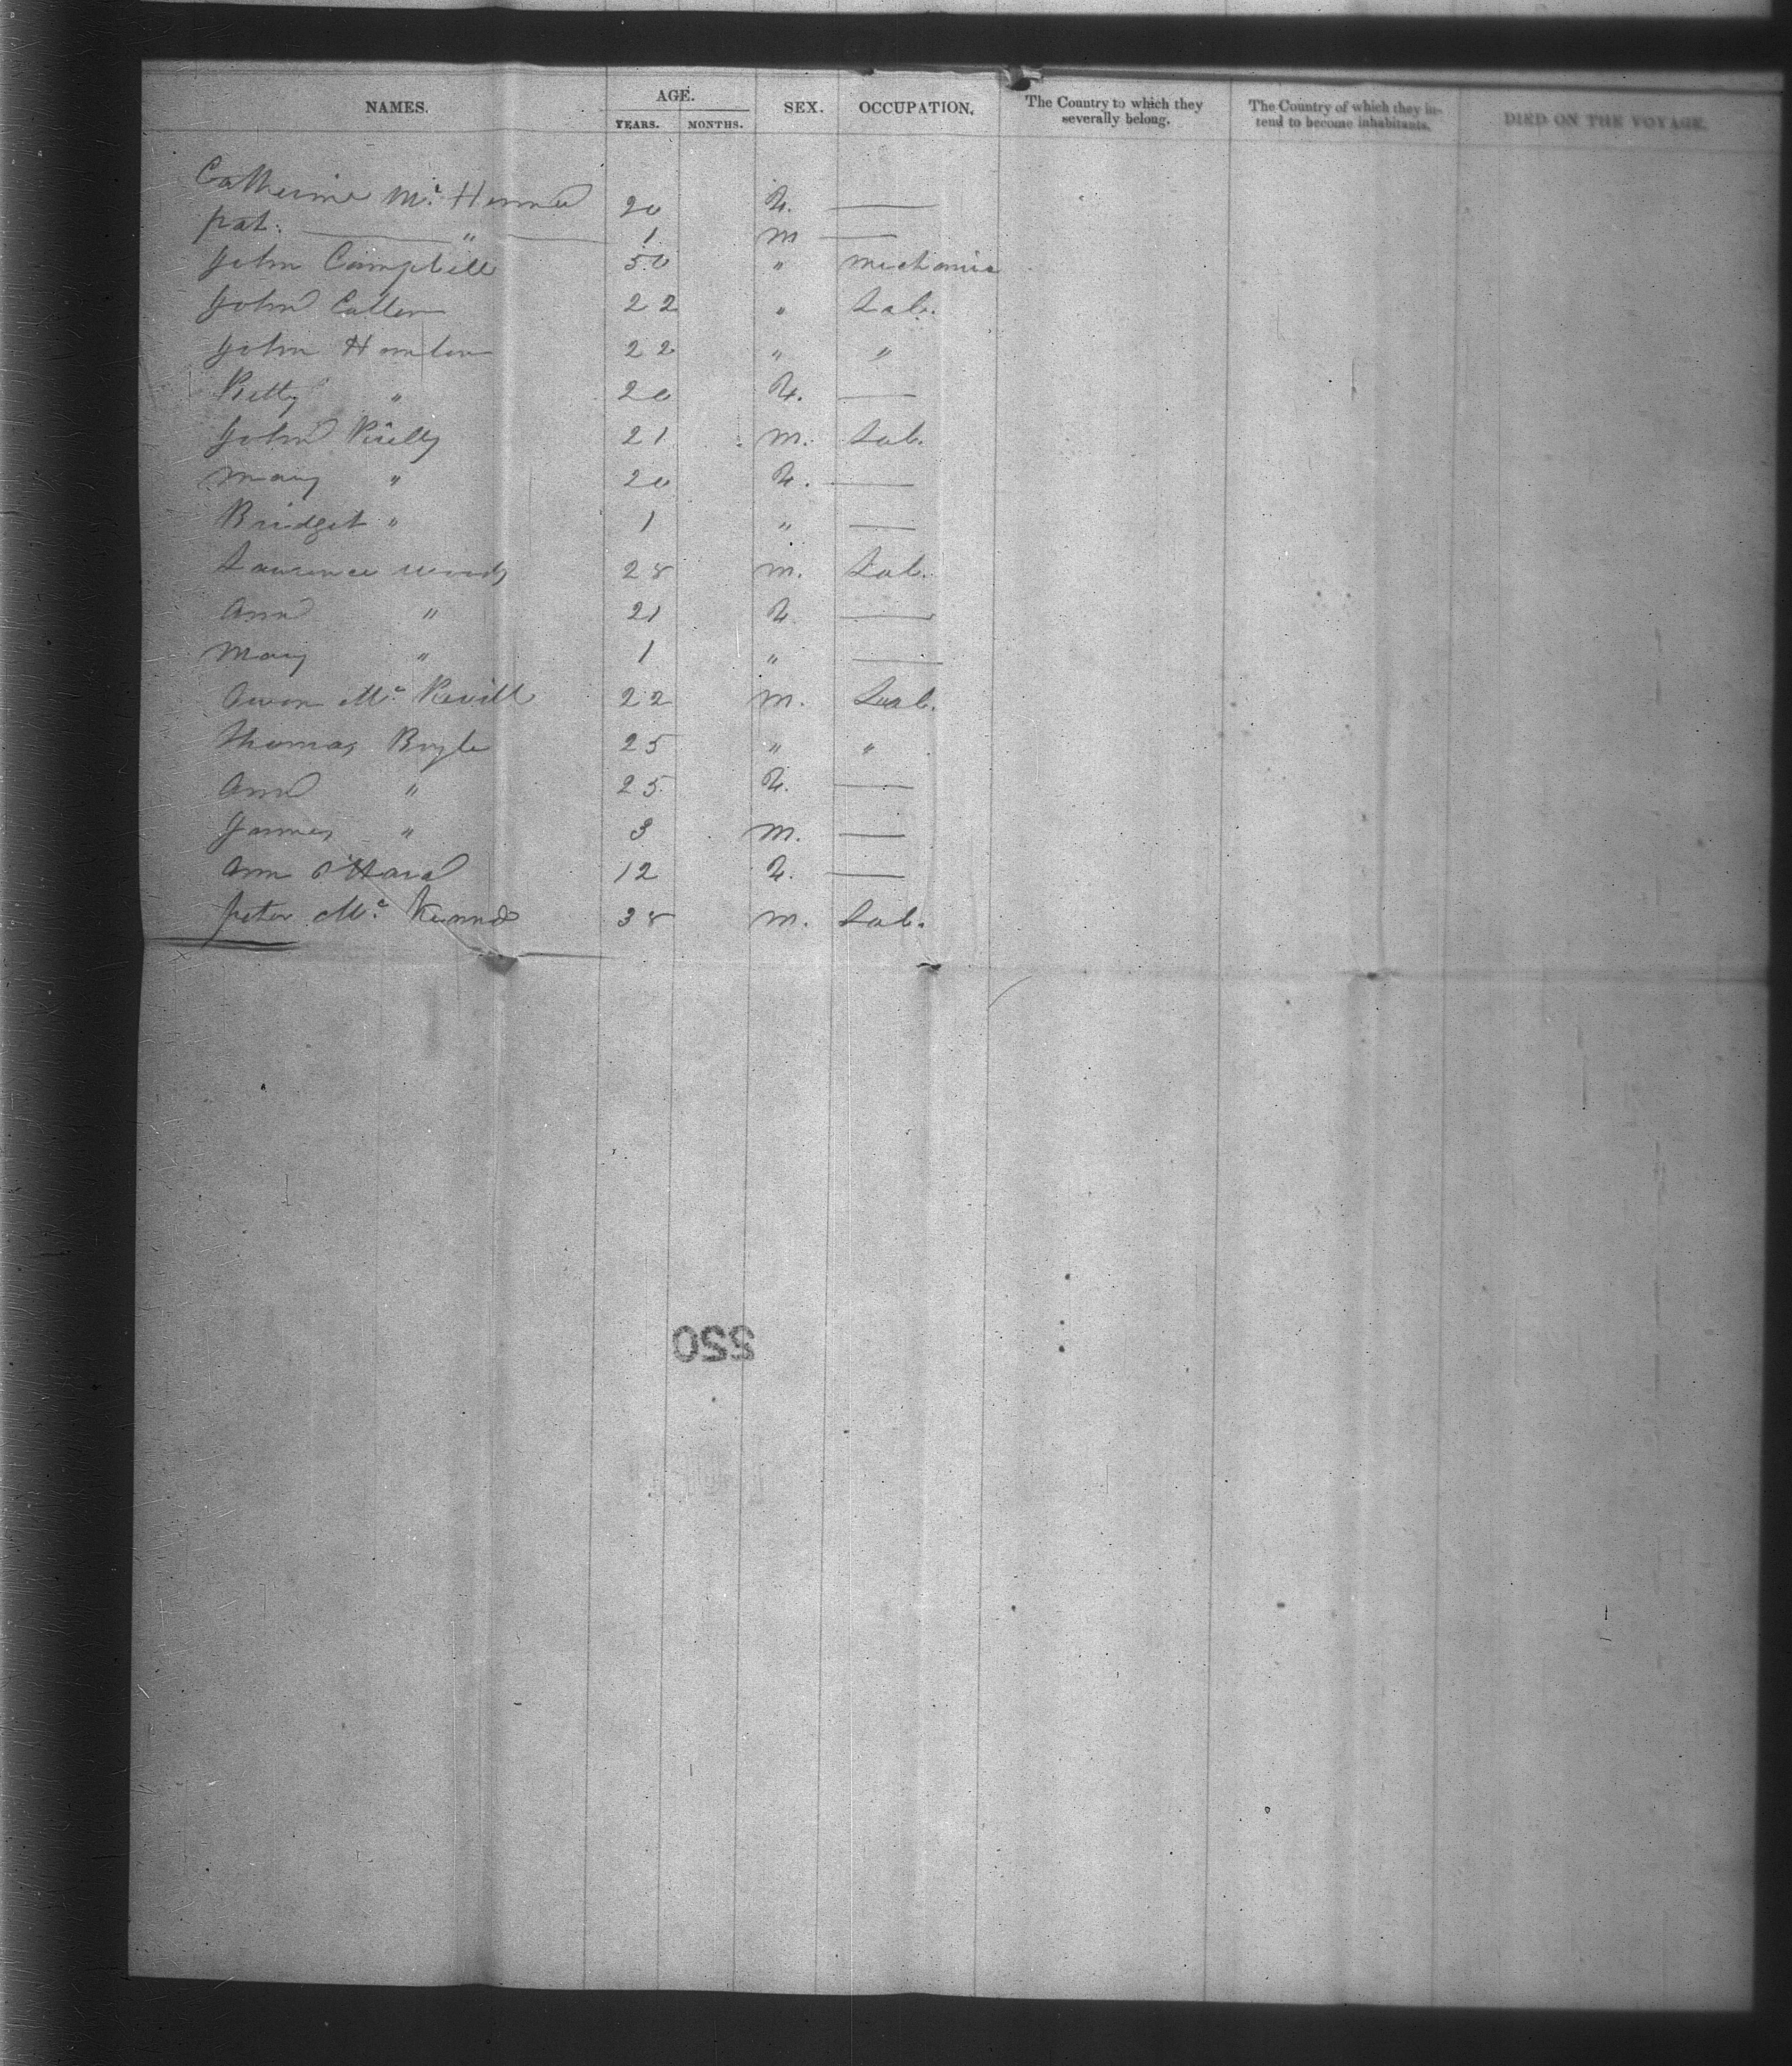 NAMES. AGE. SEX. OCCUPATION. The Country to which they severally belong. The Country of which they intend to become inhabitants. DIED ON THE VOYAGE.
YEARS. MONTHS.
Catherine Mc 20 F. —
Pat. — " — 1 m —
John Campbell 50 " mechanic
John Cullen 22 " Lab.
John Hanlon 22 " "
Kitty " 20 F. —
John Kielly 21 m. Lab.
Mary " 20 F. —
Bridget " 1 " —
Lawrence Woods 28 m. Lab.
Ann " 21 F. —
Mary " 1 " —
Owen Mc Kevitt 22 m. Lab.
Thomas Boyle 25 " "
Ann " 25 F. —
James " 3 m. —
Ann O'Hara 12 F. —
Peter Mc 38 m. Lab.
550